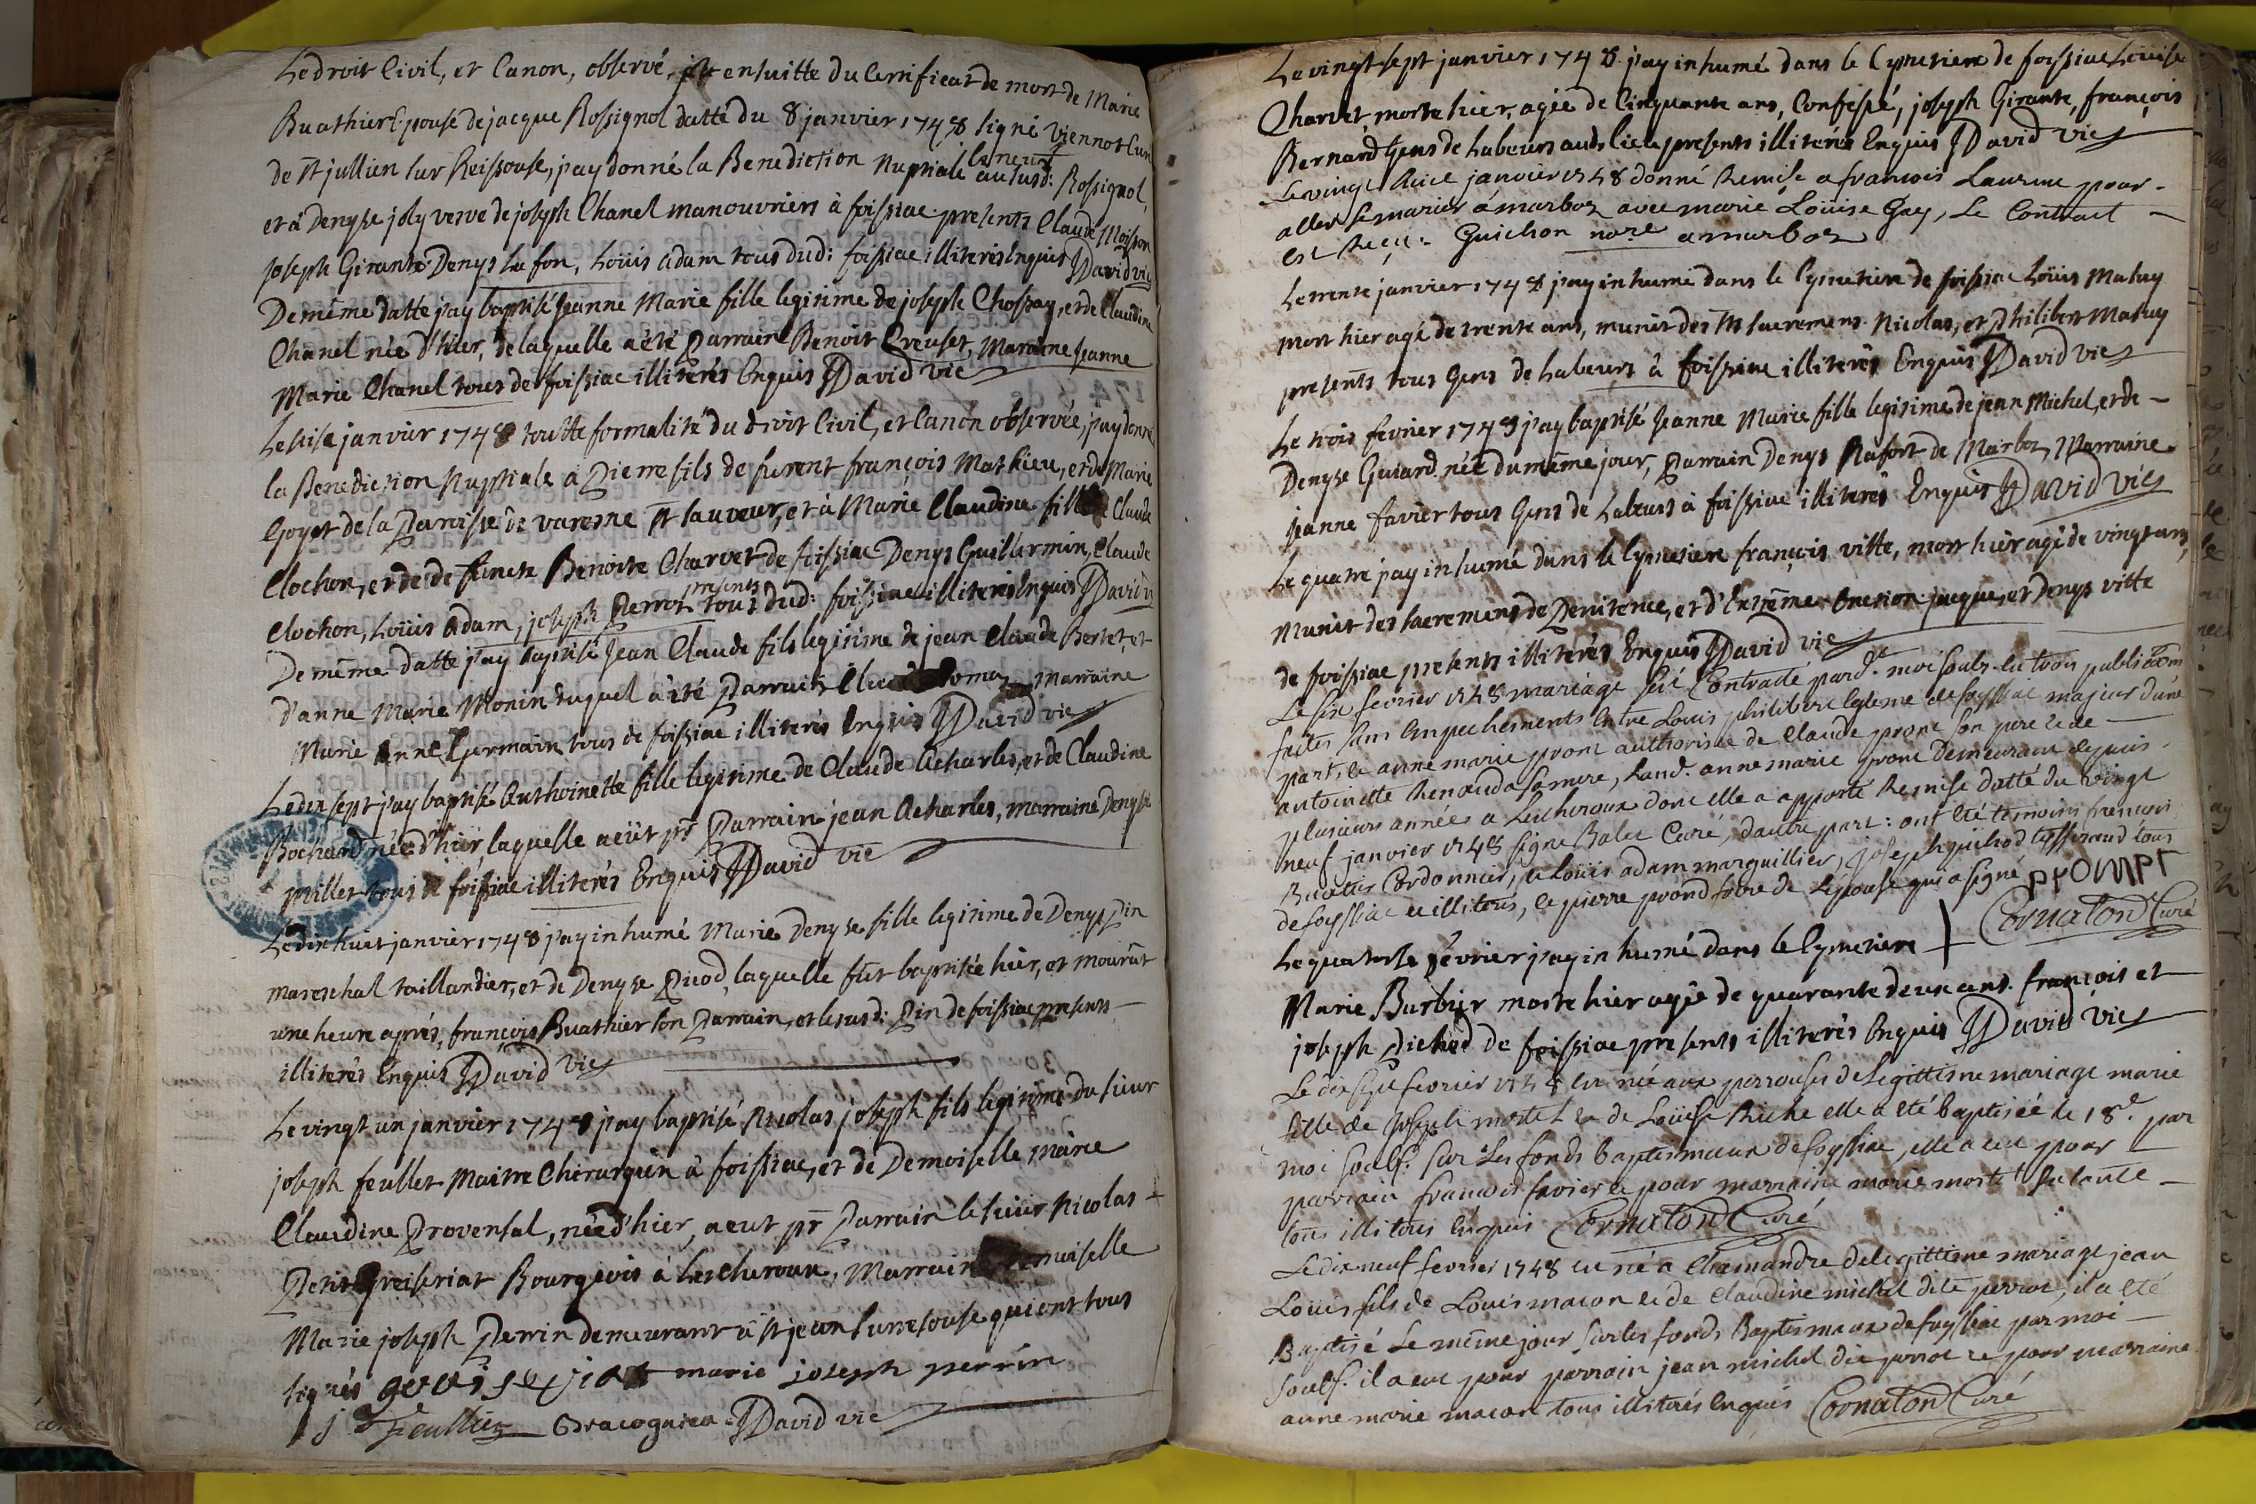 Le droit Civil, et Canon, observé, ensuitte du Certificat de mort de Marie
Buathier Epouse de jacque Rossignol datté du 8 janvier 1748 signé Viennot Curé
de St jullien sur Reissouse, j'ay donné la Benediction Nuptiale au susd: Rossignol,
et à Denyse joly veuve de joseph Chanel manouvriers à foissiac presents Claude Moisson
joseph Girante Denys Lafon, Loüis Adam tous dud: foissiac illiterés Enquis David vic
De même datte j'ay baptisé Jeanne Marie fille legitime de joseph Chossay, et de Claudine
Chanel née d'hier, de laquelle a été Parrain Benoit Creuset, Maraine Jeanne
Marie Chanel tous de foissiac illiterés Enquis David vic
Le seise janvier 1748 toutte formalité du droit Civil, et Canon observée, j'ay donné
la Benediction Nuptiale à Pierre fils de furent françois Mathieu, et de Marie
Goyot de la Paroisse de varesne St sauveur, et à Marie Claudine fille Claude
Clochon, et de de functe Benoite Charvet de foissiac Denys Guillermin, Claude
Clochon, Loüis Adam, joseph Perrot presents tous dud: foissiac illiterés Enquis David v
De même datte j'ay baptisé Jean Claude fils legitime de jean Claude Bertet, et
d'anne Marie Monin duquel a été Parrain marraine
Marie Anne Germain tous de foissiac illiterés Enquis David vic
Le dix sept j'ay baptisé Anthoinette fille legitime de Claude Acharles, et de Claudine
Bochard née d'hier laquelle a eüt pr Parrain jean Acharles, marraine Denyse
Millet tous de foissiac illiterés Enquis David vic
Le dix huit janvier 1748 j'ay inhumé Marie Denyse fille legitime de Denys Pin
mareschal taillandier, et de Denyse Picod, laquelle fût baptisée hier, et mourût
une heure aprés, françois Buathier son Parrain, et le susd: Pin de foissiac presents
illiterés Enquis David vic
Le vingt un janvier 1748 j'ay baptisé Nicolas joseph fils legitime du sieur
joseph feullet Maitre Chirurgien à foissiac, et de Demoiselle Marie
Claudine Provensal, né d'hier, a eut pr Parrain le sieur Nicolas
Denis Greiseriat Bourgeois à Lescheroux, Marraine Demoiselle
Marie joseph Perrin demeurant à St jean sur resouse qui ont tous
signés marie joseph perrin
j Feulliet Bracognier David vic
Le vingt sept janvier 1748 j'ay inhumé dans le Cymetiere de foissiac Loüise
Charvet morte hier, agée de Cinquante ans, Confessé, joseph Girante, françois
Bernard Gens de Labeurs aud: lieu presents illiterés Enquis David vic
Le vingt janvier 1748 donné Remise a francois Laurent pour
aller se marier à marboz avec marie Loüise Gay, Le Contract
est Reçu: Guichon nore a marboz
Le trente janvier 1748 j'ay inhumé dans le Cymetiere de foissiac Loüis Mathy
mort hier agé de trente ans, munit des St sacremens Nicolas, et Philibert Mathy
presents tous Gens de Labeurs à foissiac illiterés Enquis David vic
Le trois fevrier 1748 j'ay baptisé Jeanne Marie fille legitime de jean Michel, et de
Denyse Guiard née du même jour, Parrain Denys Rafort de Marboz, Marraine
Jeanne favier tous Gens de Labeurs à foissiac illiterés Enquis David vic
Le quatre j'ay inhumé dans le Cymetiere françois vitte, mort hier agé de vingt ans,
munit des sacremens de Penitence, et d'Extrême Onction jacque, et Denys vitte
de foissiac presents illiterés Enquis David vic
Le six fevrier 1748 mariage fut Contracté pard. moi soubs. les trois publicaons
faites sans Empechements Entre Louis philibert de foyssiac majeur d'une
part, et anne marie pront authorisée de Claude pront son pere et de
antoinette Renaud sa mere, Lad. anne marie pront Demeurant depuis
plusieurs années a Lescheroux dont elle a apporté Remise datté du vingt
neuf janvier 1748 signé Balet Curé, d'autre part: ont été temoins francois
Buattier Cordonnier, et Loüis adam marguillier, joseph guichod tisserand tous
de foyssiac et illiterés, et pierre pront frere de L'epouse qui a signé promt
Cornaton Curé
Le quatorze fevrier j'ay inhumé dans le Cymetiere
Marie Barbier morte hier agée de quarante deux ans. françois et
joseph Pichod de foissiac presents illiterés Enquis David vic
Le dix sept fevrier 1748 est née aux perrouses de Legittime mariage marie
fille de joseph mortel et de Loüise Riche elle a été baptisée le 18e par
moi soubs. sur Les fonds baptismaux de foyssiac, elle a eu pour
parrain francois favier et pour marraine marie mortel sa tante
tous illiterés Enquis Cornaton Curé
Le dix neuf fevrier 1748 est né a Chamandre de legittime mariage jean
Loüis fils de Loüis macon et de Claudine michel dite perrot, il a été
Baptisé Le même jour sur les fonds Baptismaux de foyssiac par moi
soubs. il a eu pour parrain jean michel dit perrot et pour marraine
anne marie macon tous illiterés Enquis Cornaton Curé